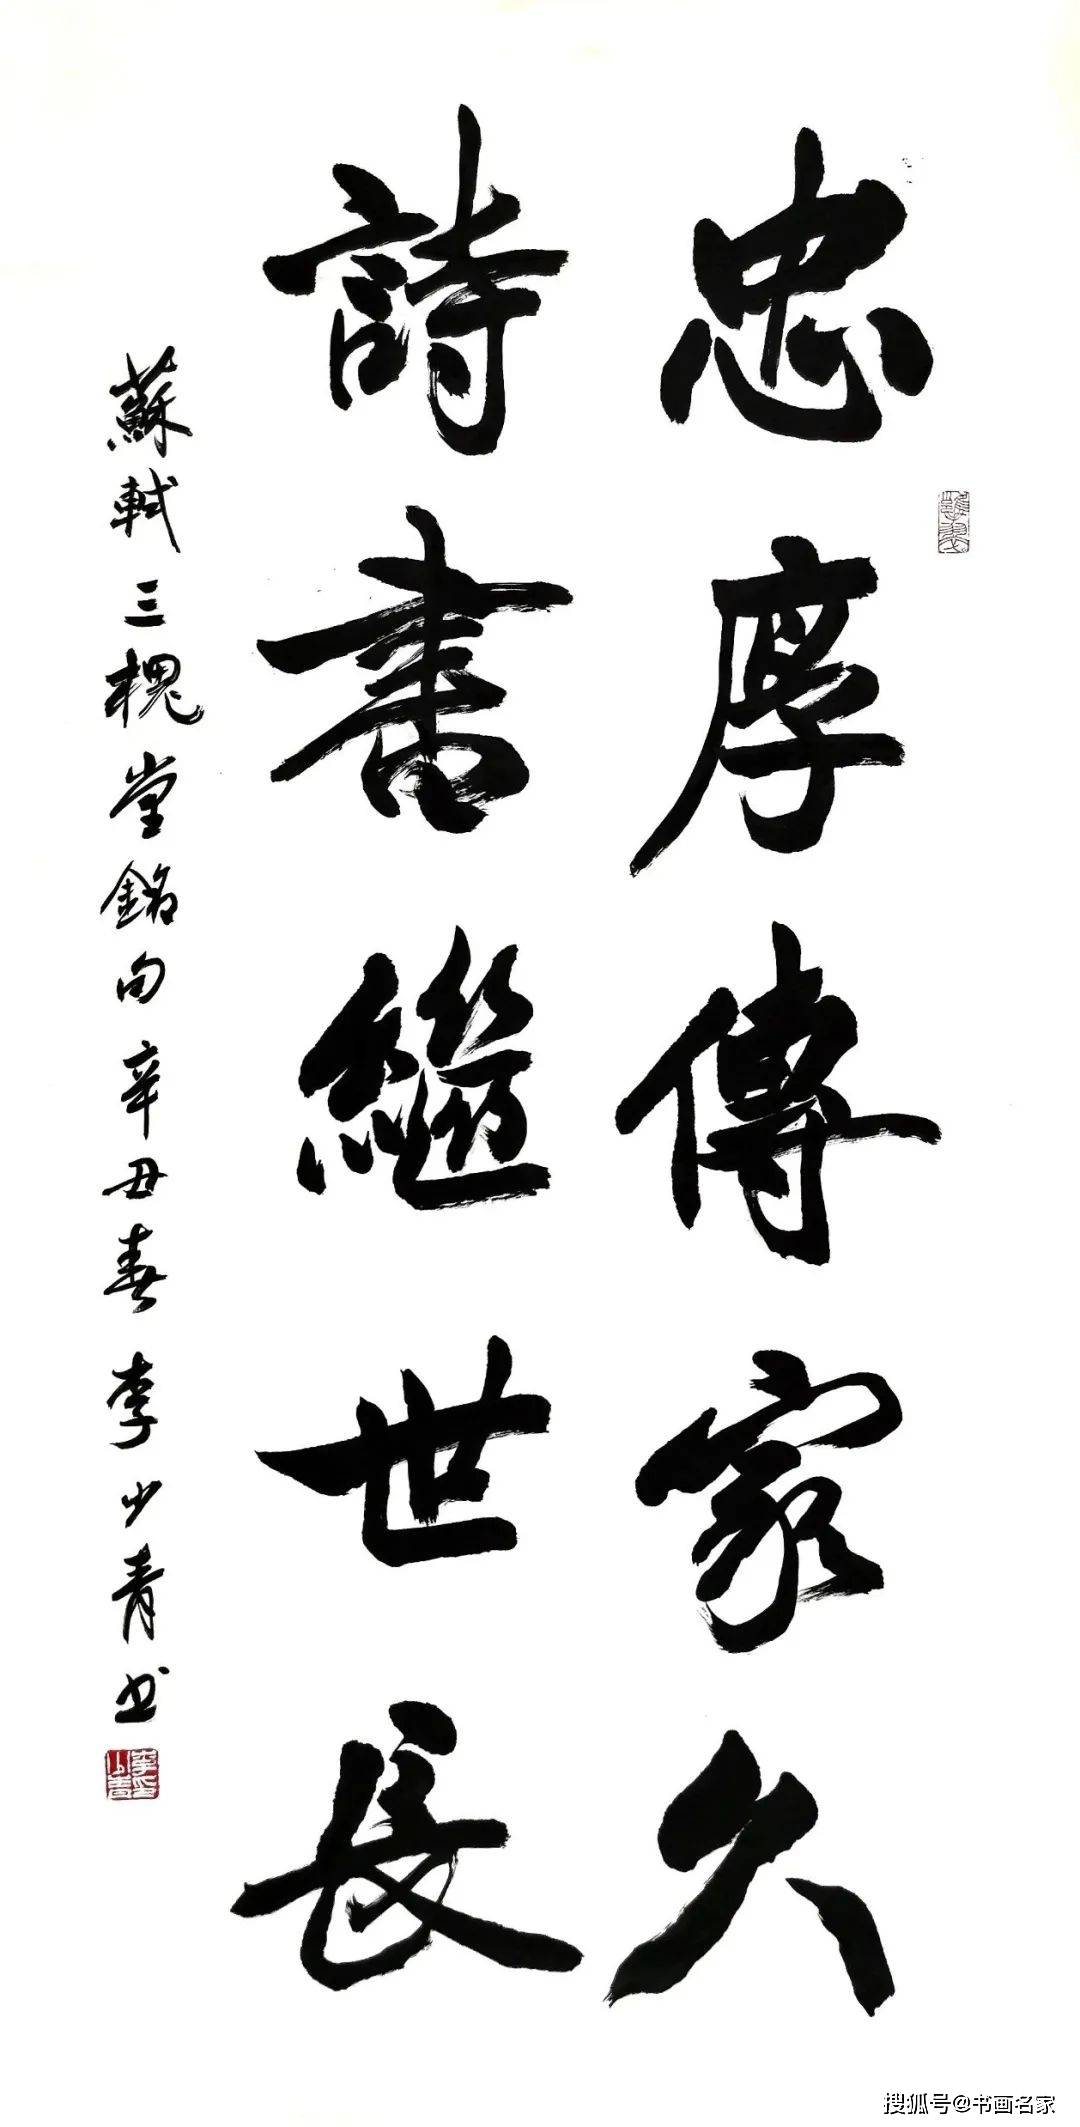 忠厚傳家久
詩書繼世長
蘇軾三槐堂銘句辛丑春李少青书
李少青印
搜狐号@书画名家